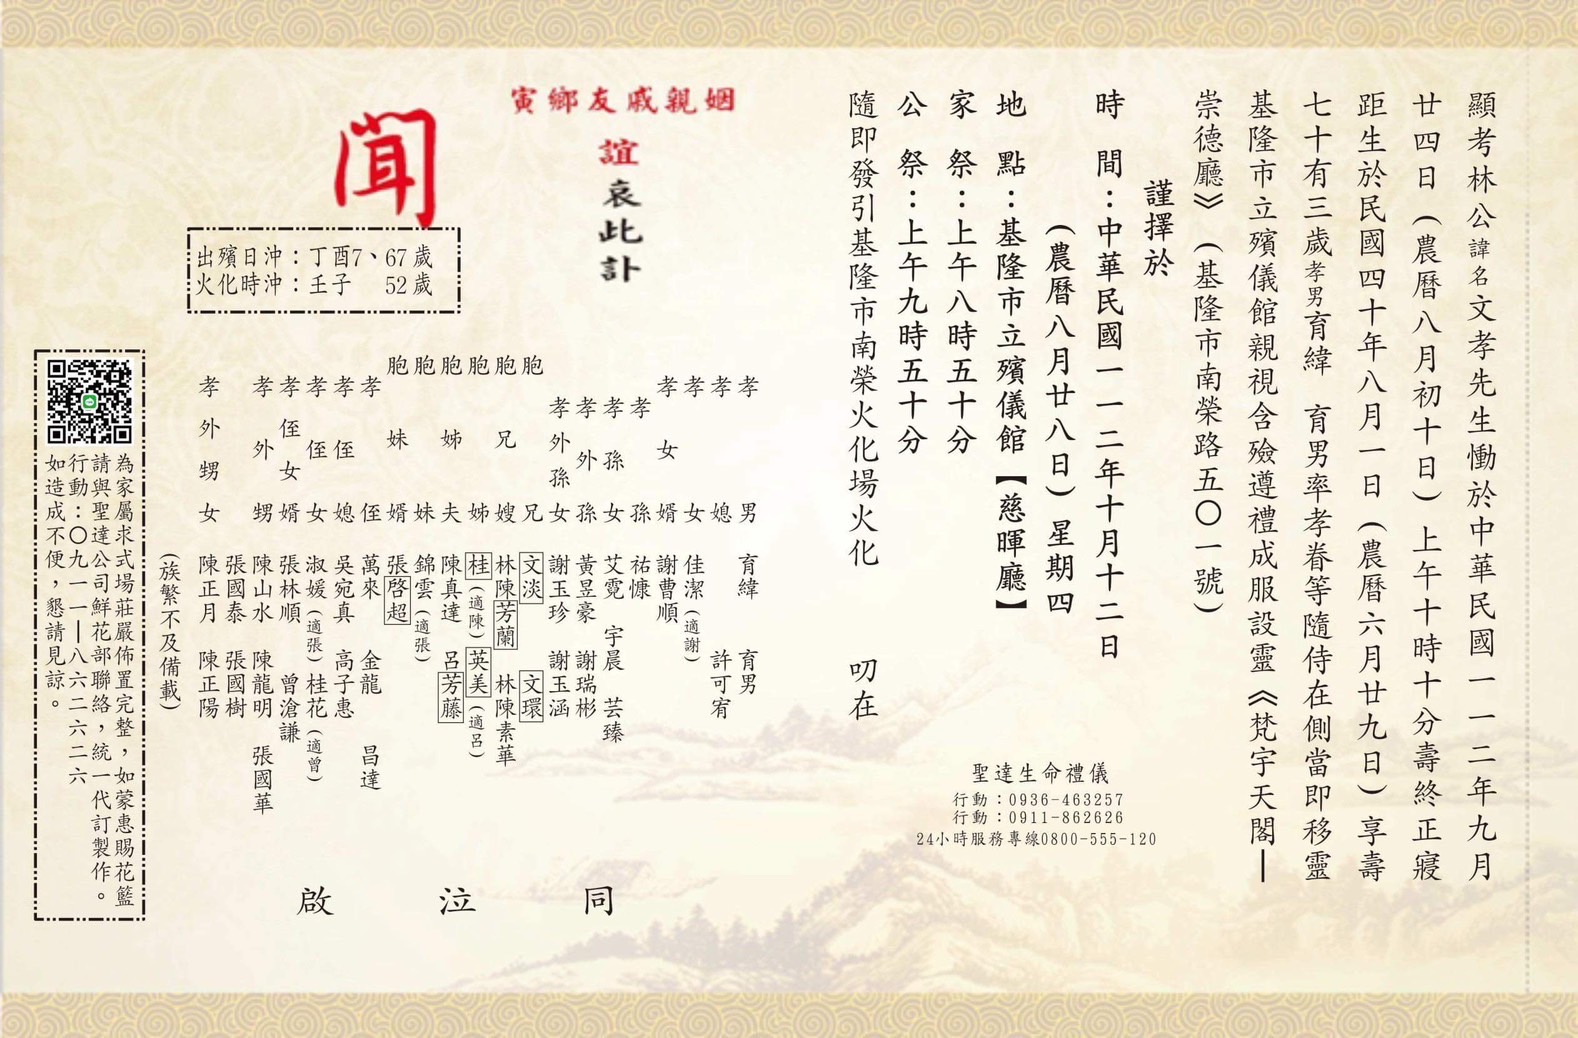 顯考林公諱名文孝先生慟於中華民國一一二年九月
廿四日(農曆八月初十日)上午十時十分壽終正寢
距生於民國四十年八月一日(農曆六月廿九日)享壽
七十有三歲孝男育緯　育男率孝眷等隨侍在側當即移靈
基隆市立殯儀館親視含殮遵禮成服設靈《梵宇天閣—
崇德廳》(基隆市南榮路五〇一號)
謹擇於
時　間：中華民國一一二年十月十二日
(農曆八月廿八日)星期四
地　點：基隆市立殯儀館【慈暉廳】
家　祭：上午八時五十分
公　祭：上午九時五十分
隨即發引基隆市南榮火化場火化　　叨在
聖達生命禮儀
行動：0936-463257
行動：0911-862626
24小時服務專線0800-555-120
寅鄉友戚親姻
誼
哀此訃
聞
出殯日沖：丁酉7、67歲
火化時沖：壬子　52歲
孝男　育緯　育男
孝媳　許可宥
孝女　佳潔(適謝)
孝女婿　謝曹順
孝孫　祐慷
孝孫女　艾霓　宇晨　芸臻
孝外孫　黃昱豪　謝瑞彬
孝外孫女　謝玉珍　謝玉涵
胞兄　文淡　文環
胞兄嫂　林陳芳蘭　林陳素華
胞姊　桂(適陳)　英美(適呂)
胞姊夫　陳真達　呂芳藤
胞妹　錦雲(適張)
胞妹婿　張啓超
孝侄　萬來　金龍　昌達
孝侄媳　吳宛真　高子惠
孝侄女　淑媛(適張)　桂花(適曾)
孝侄女婿　張林順　曾滄謙
孝外甥　陳山水　陳龍明　張國華
張國泰　張國樹
孝外甥女　陳正月　陳正陽
(族繁不及備載)
同　泣　啟
為家屬求式場莊嚴佈置完整，如蒙惠賜花籃
請與聖達公司鮮花部聯絡，統一代訂製作。
行動：〇九一一—八六二六二六
如造成不便，懇請見諒。